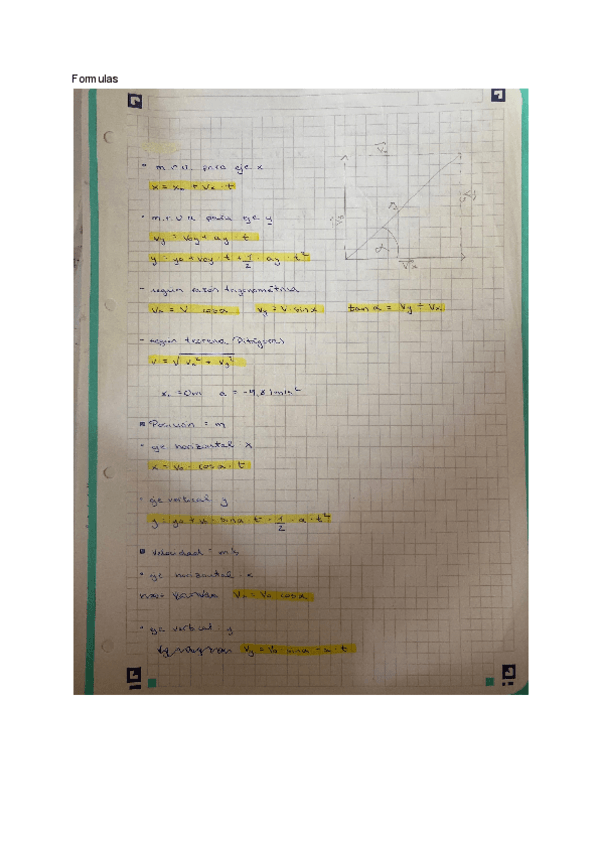 Formulas
- m.r.u. para eje x
x = x₀ + vₓ · t
- m.r.u.a para eje y
vy = voy + ay · t
y = yo + voy · t + 1/2 · ay · t²
- según razon trigonométrica
vₓ = v cos α vy = v · sin α tan α = vy ÷ vₓ
- según teorema Pitágoras
v = √vₓ² + vy²
x₀ = 0m a = -9,81 m/s²
Posición = m
- eje horizontal x
x = v₀ · cos α · t
- eje vertical y
y = yo + v₀ · sin α · t - 1/2 · a · t²
Velocidad = m/s
- eje horizontal x
vₓ = v₀ cos α
- eje vertical y
vy = v₀ · sin α - a · t
vₓ
α